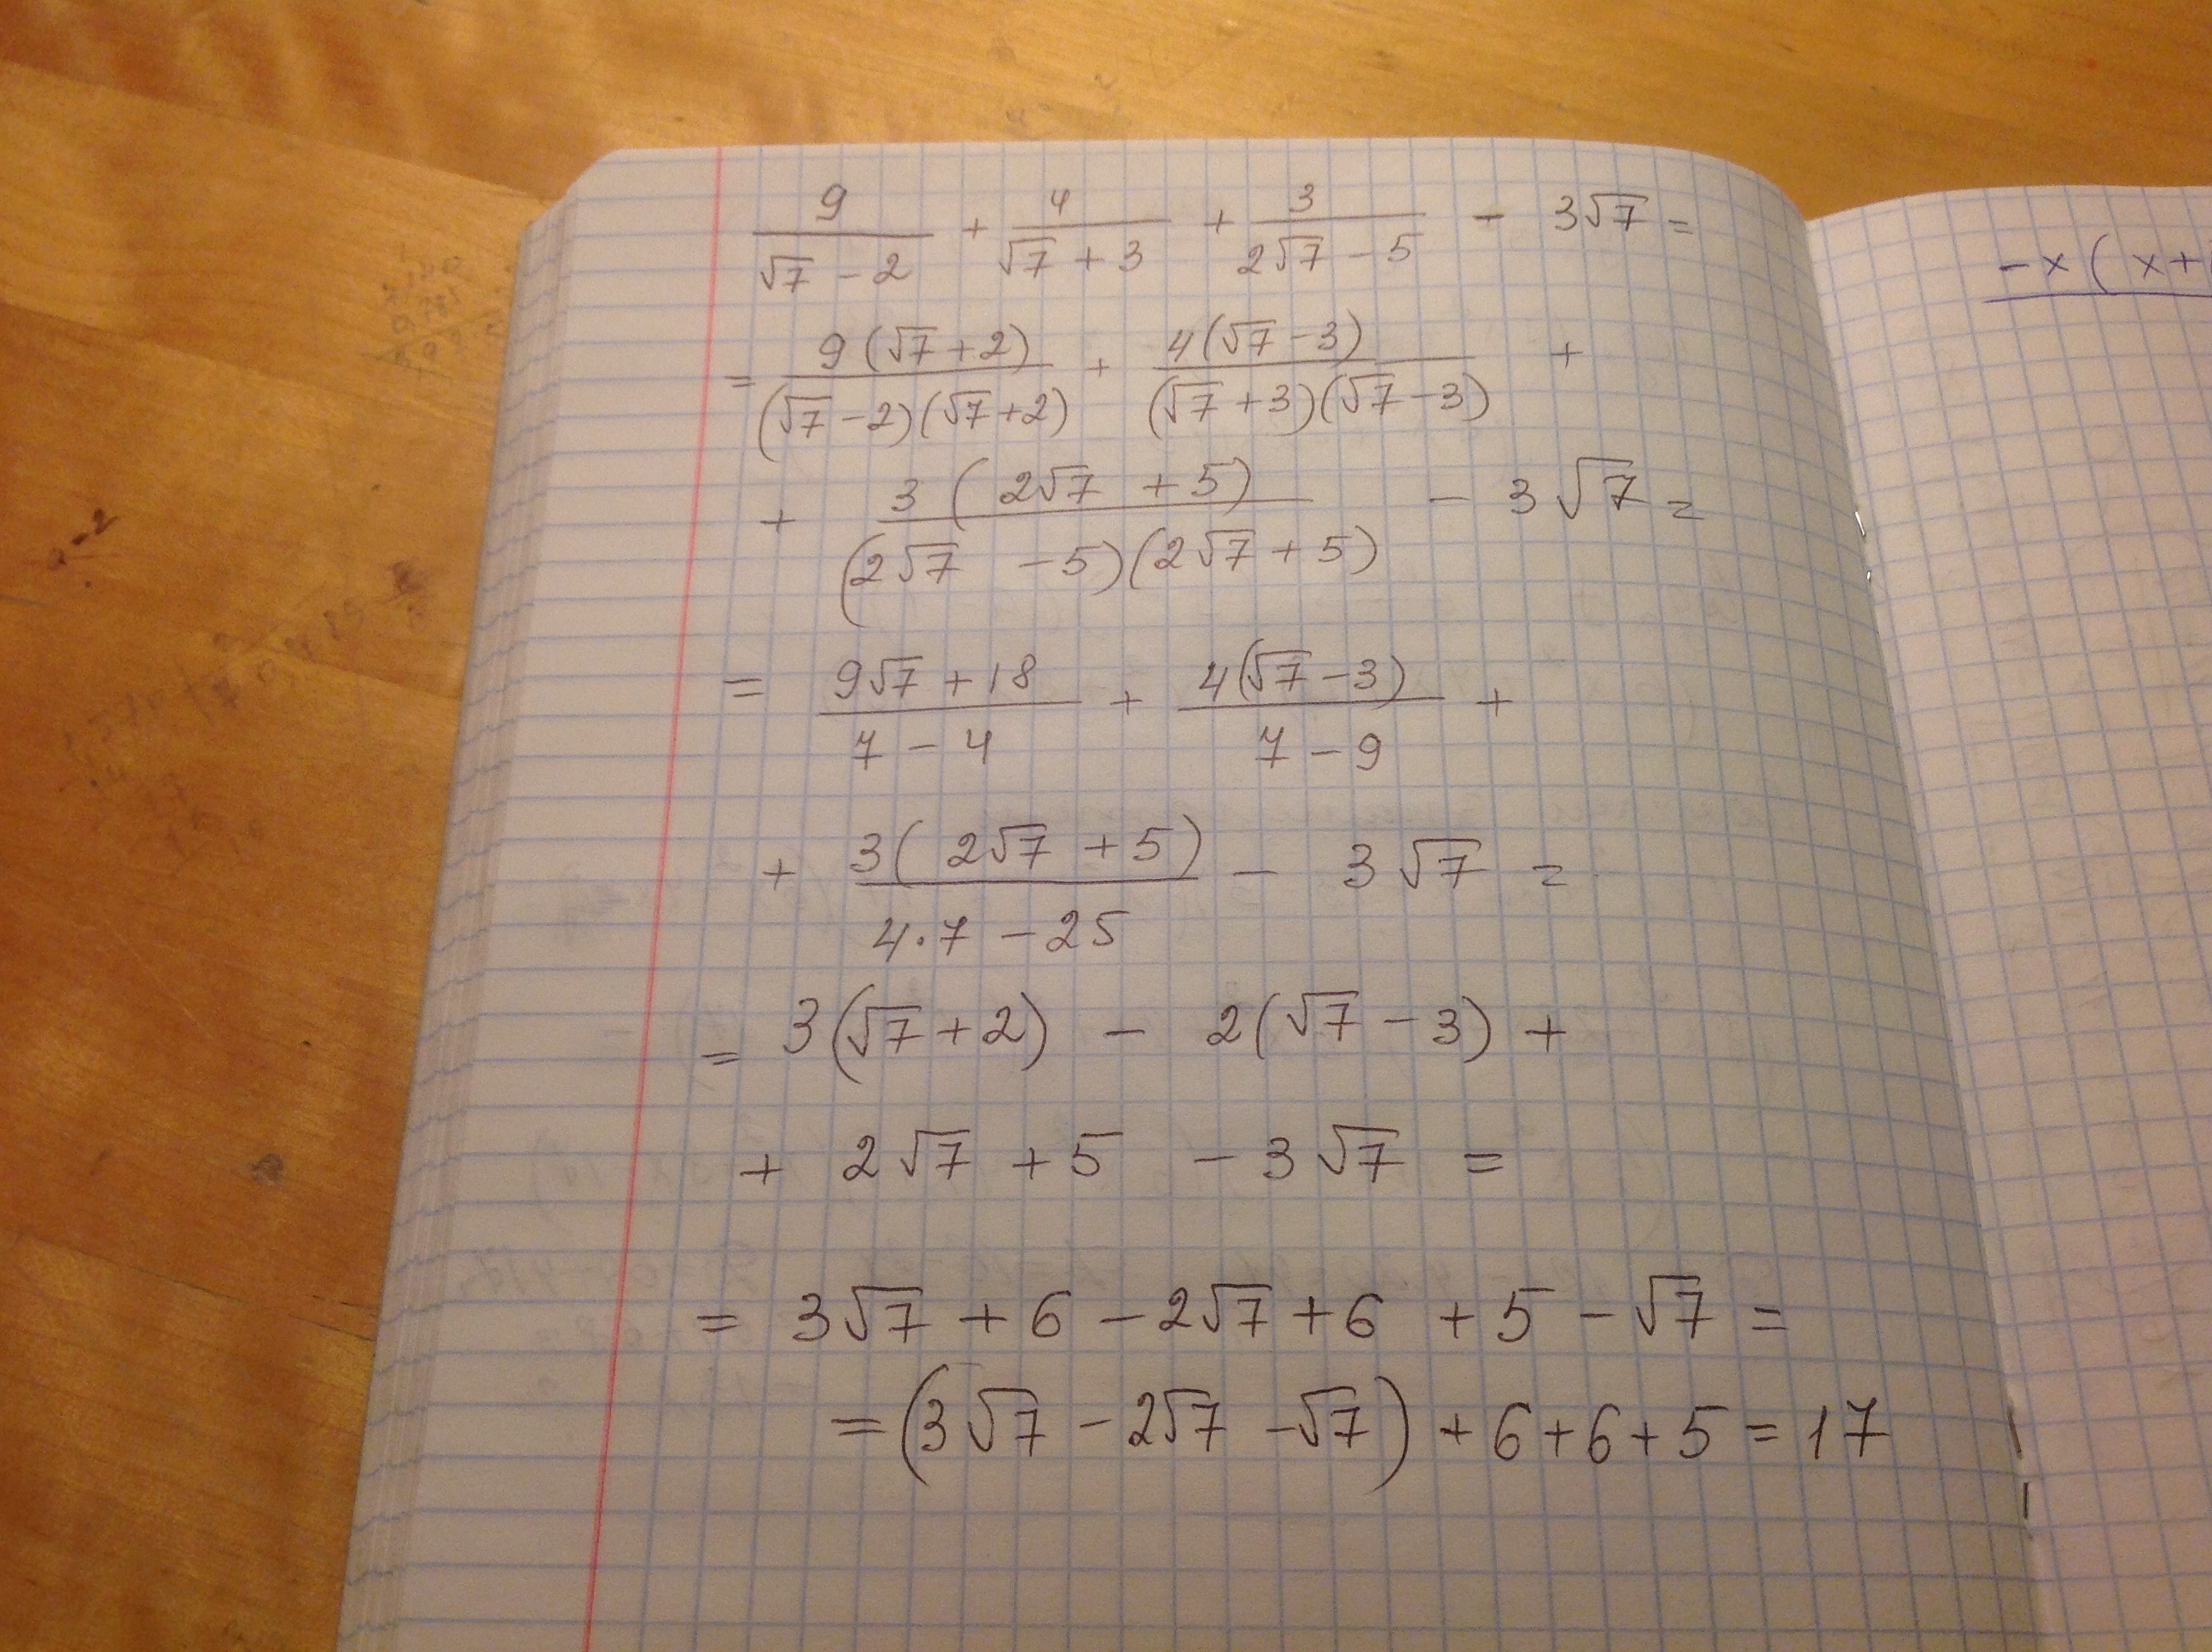 9/(√7 − 2) + 4/(√7 + 3) + 3/(2√7 − 5) − 3√7 =
= 9(√7 + 2)/((√7 − 2)(√7 + 2)) + 4(√7 − 3)/((√7 + 3)(√7 − 3)) +
+ 3(2√7 + 5)/((2√7 − 5)(2√7 + 5)) − 3√7 =
= (9√7 + 18)/(7 − 4) + 4(√7 − 3)/(7 − 9) +
+ 3(2√7 + 5)/(4·7 − 25) − 3√7 =
= 3(√7 + 2) − 2(√7 − 3) +
+ 2√7 + 5 − 3√7 =
= 3√7 + 6 − 2√7 + 6 + 5 − √7 =
= (3√7 − 2√7 − √7) + 6 + 6 + 5 = 17
−x(x+